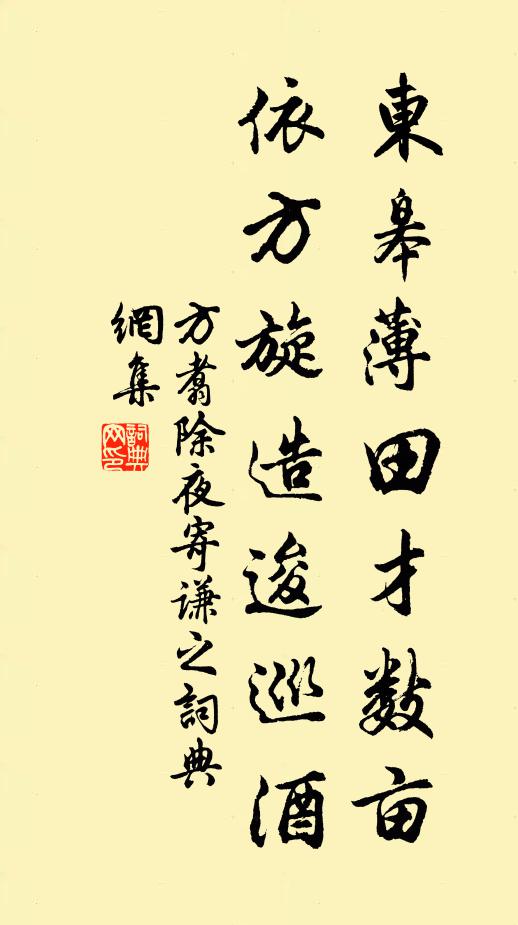 東皋薄田才數亩
依方旋造逡巡酒
方翥除夜寄谦之詞典
網集
詞典
网印